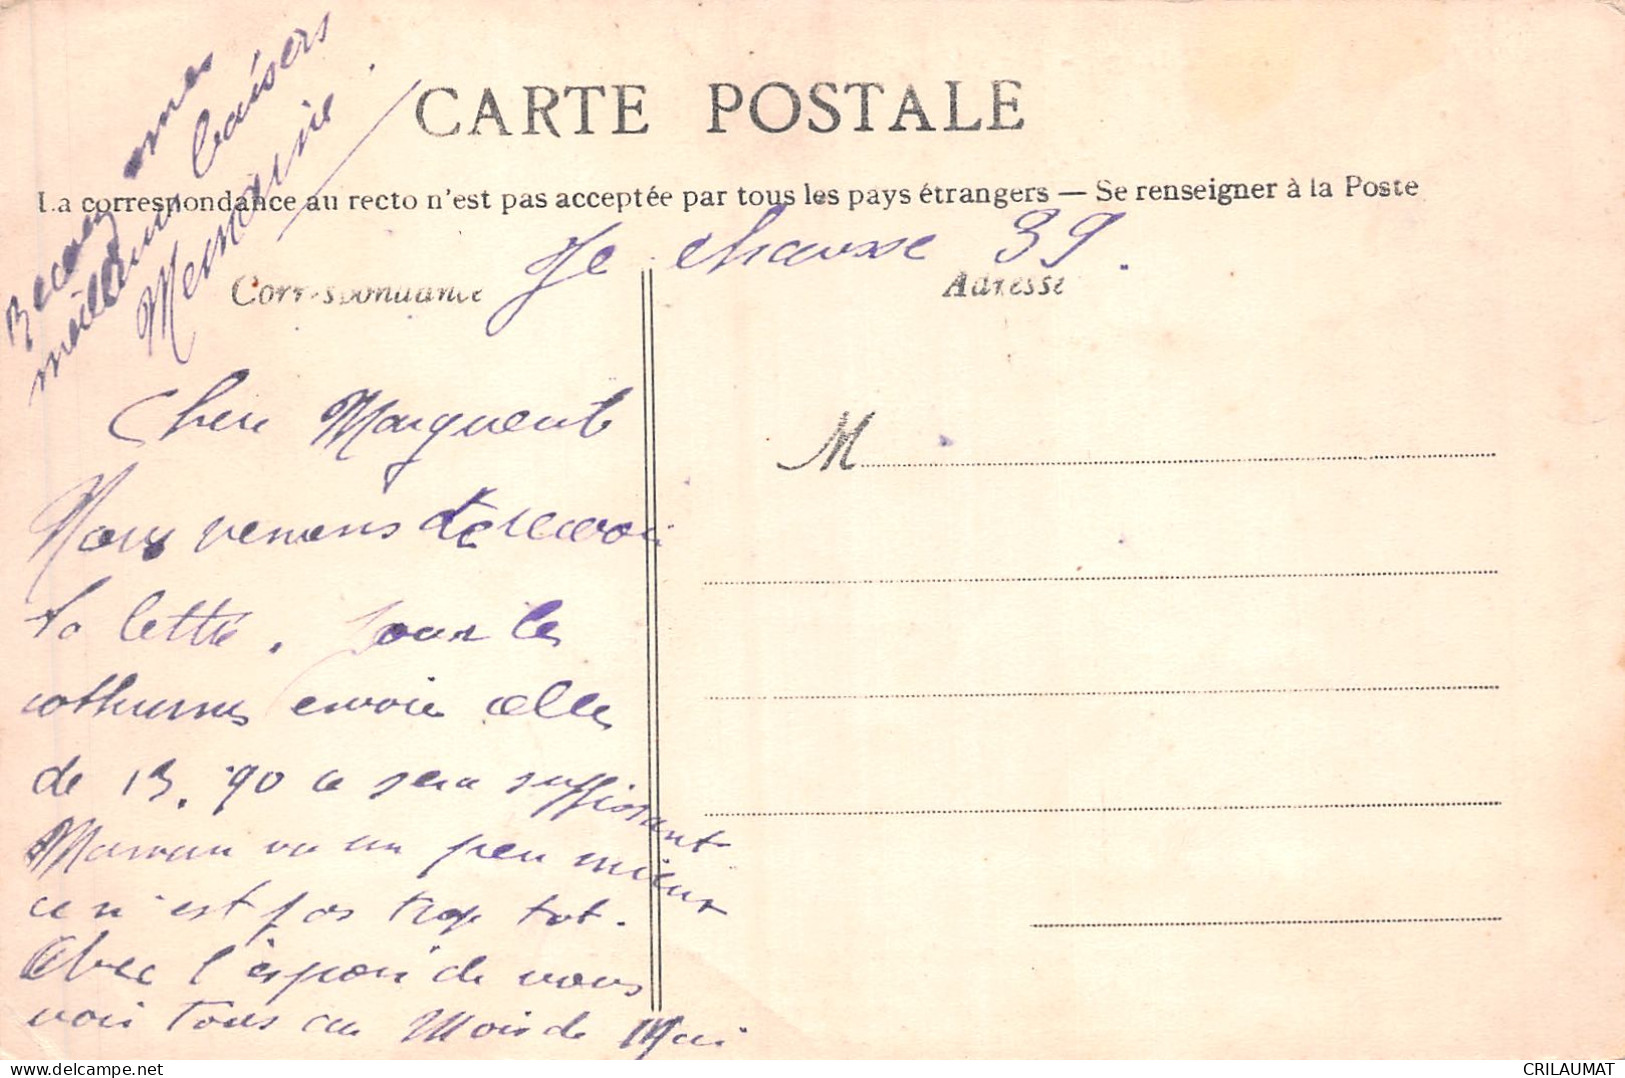 CARTE POSTALE
La correspondance au recto n'est pas acceptée par tous les pays étrangers — Se renseigner à la Poste
Je chausse 39.
Correspondance
Adresse
M
Chere Marguerite
Nous venons de recevoir
ta lettre. Pour les
cothurnes envoie celles
de 13.90 ce sera suffisant
Maman va un peu mieux
ce n'est pas trop tot.
Avec l'espoir de vous
voir tous au Mois de Mai
Recois mes
meilleurs baisers
delcampe.net
CRILAUMAT